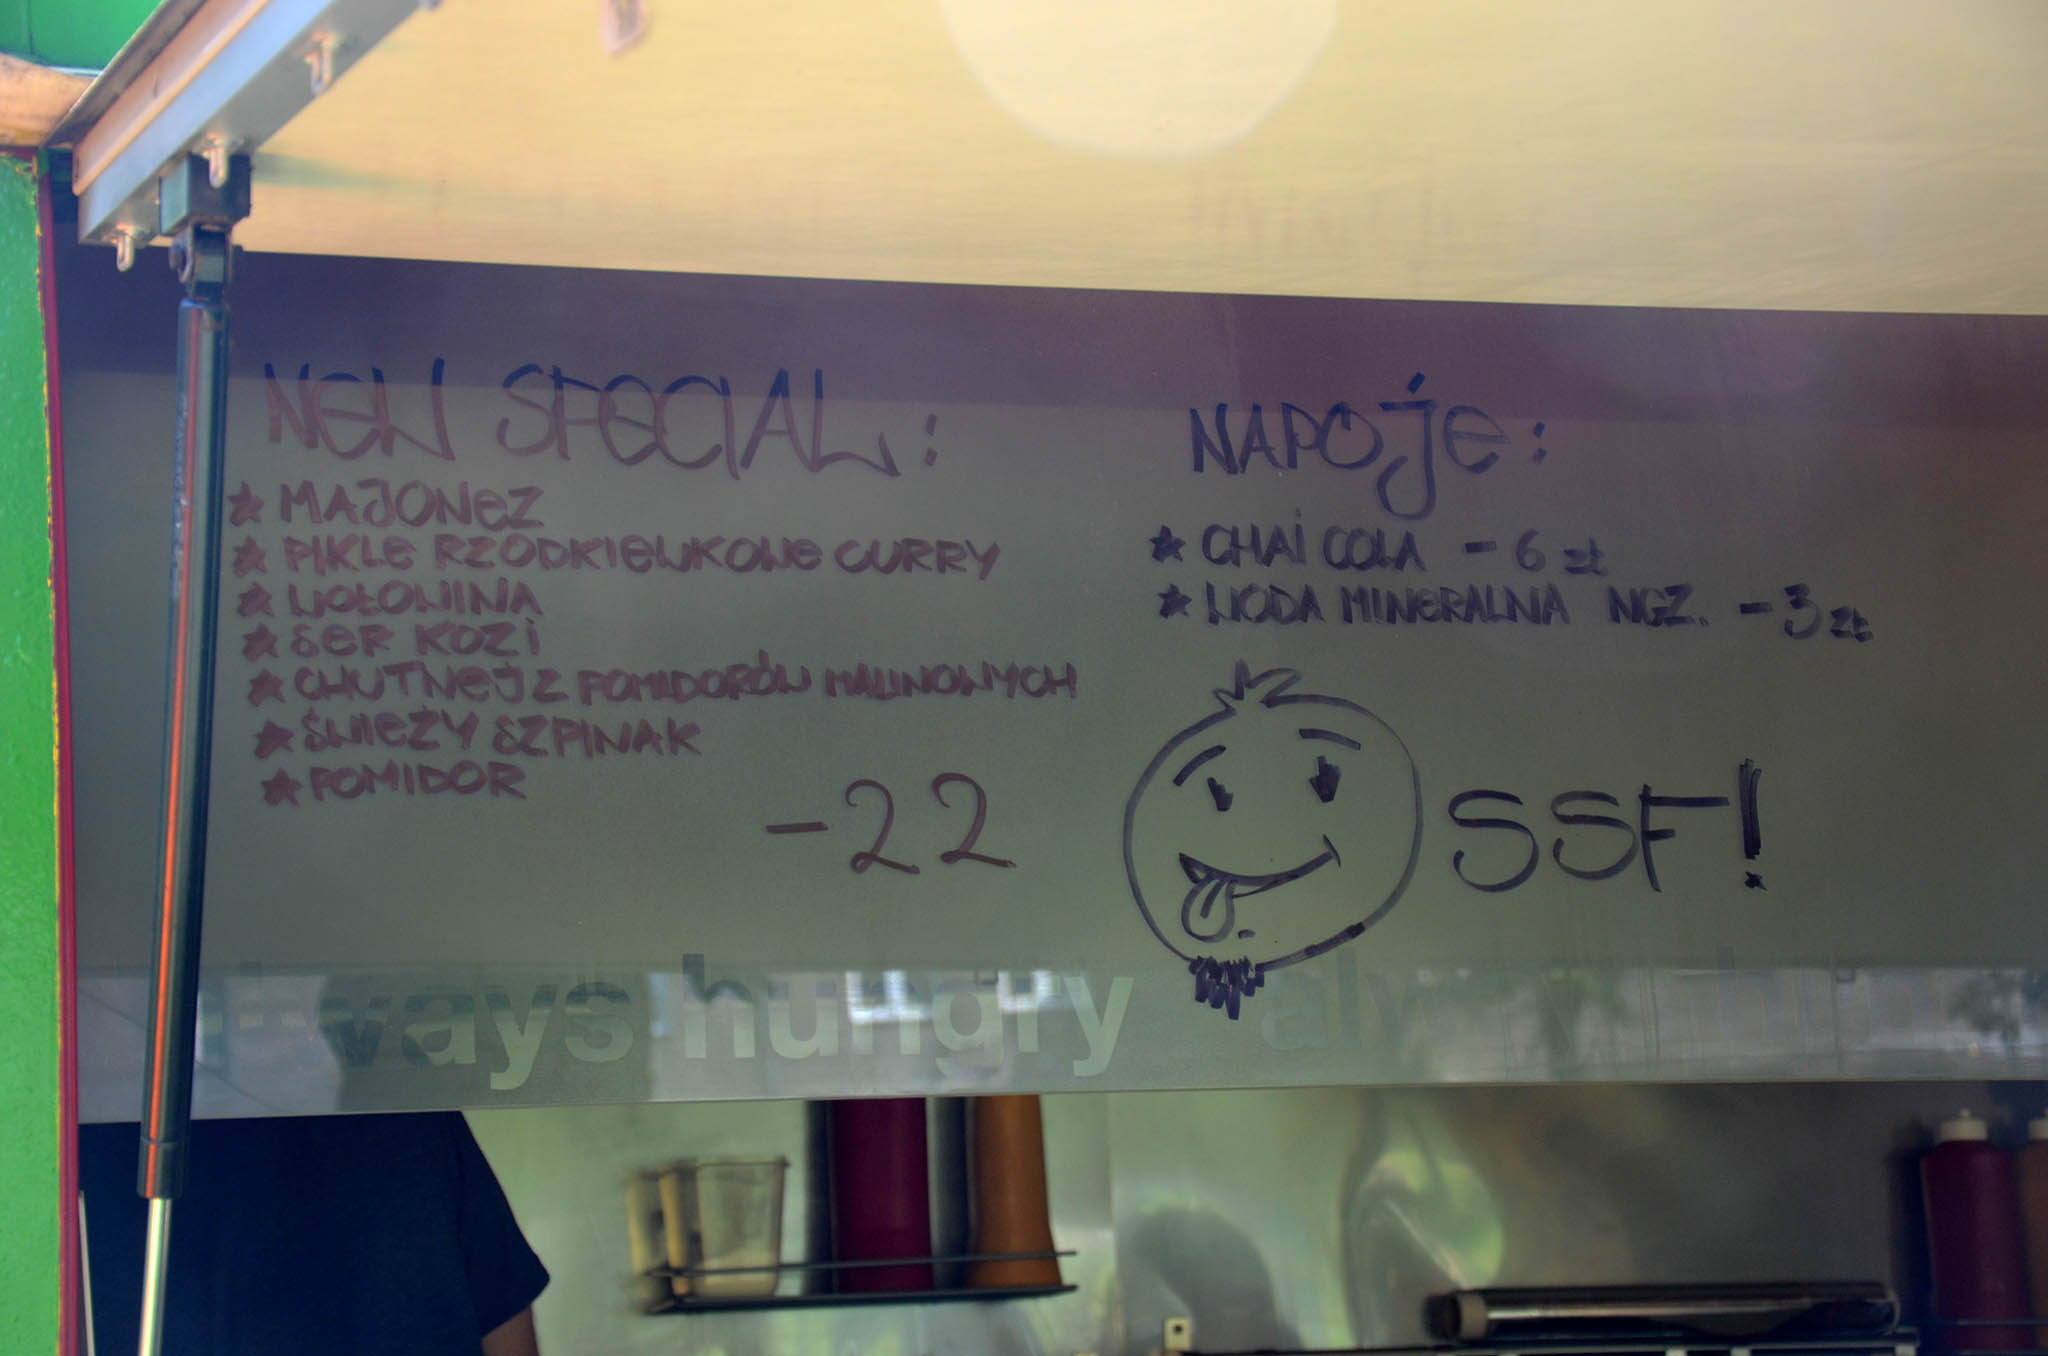 NEW SPECIAL:
★ MAJONEZ
★ PIKLE RZODKIEWKOWE CURRY
★ WOŁOWINA
★ SER KOZI
★ CHUTNEJ Z POMIDORÓW MALINOWYCH
★ ŚWIEŻY SZPINAK
★ POMIDOR
-22
NAPOJE:
★ CHAI COLA - 6 zł
★ WODA MINERALNA NGZ. - 3 zł
SSF!
always hungry